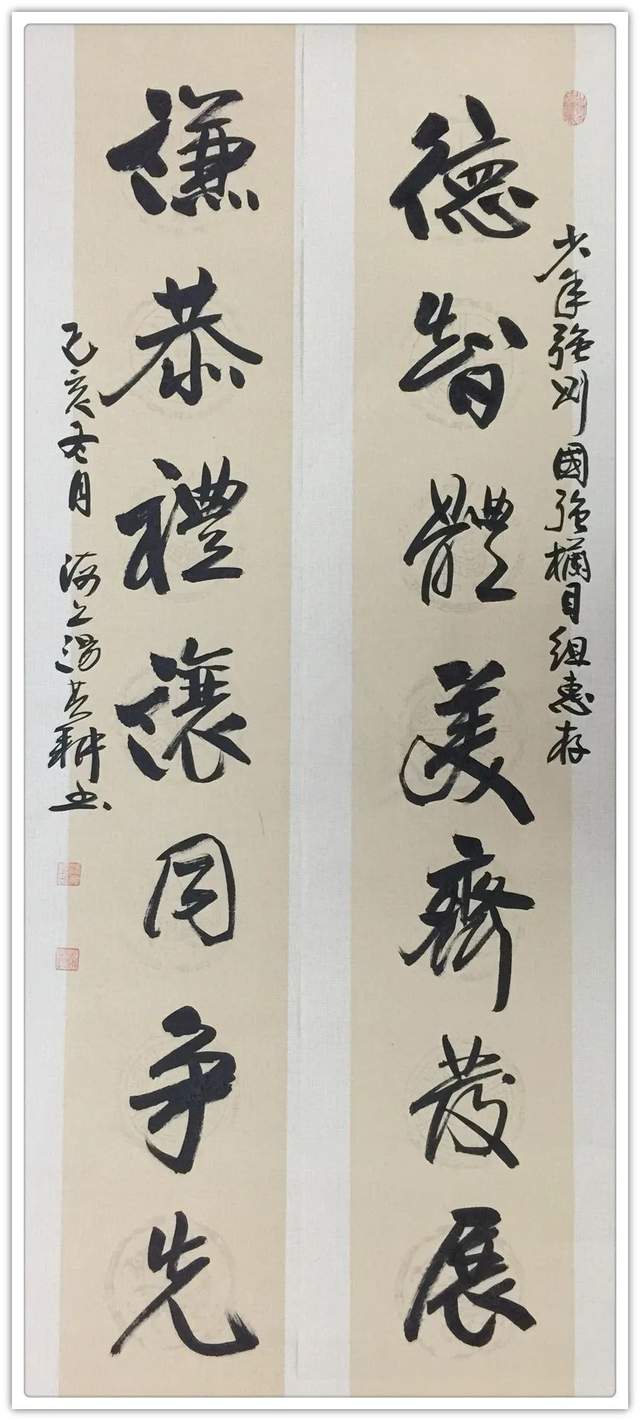 少年强则國强欄目組惠存
德智體美齊發展
謙恭禮讓同爭先
己亥冬月 海上湯其耕书